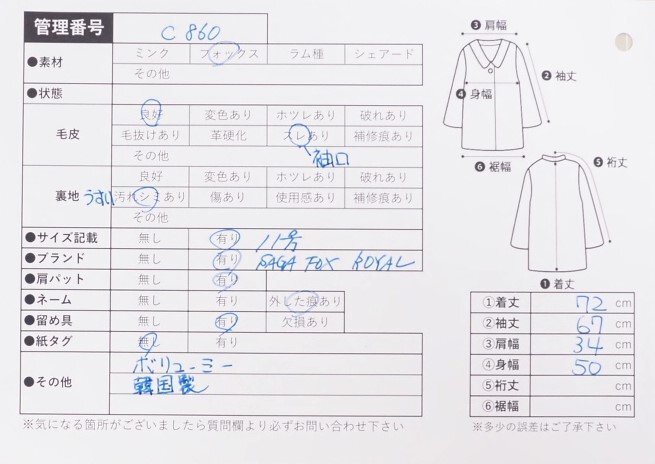 管理番号 C 860
●素材 ミンク フォックス ラム種 シェアード
その他
●状態
毛皮 良好 変色あり ホツレあり 破れあり
毛抜けあり 革硬化 スレあり 補修痕あり
その他 袖口
裏地 良好 変色あり ホツレあり 破れあり
うすい 汚れシミあり 傷あり 使用感あり 補修痕あり
その他
●サイズ記載 無し 有り 11号
●ブランド 無し 有り SAGA FOX ROYAL
●肩パット 無し 有り
●ネーム 無し 有り 外した痕あり
●留め具 無し 有り 欠損あり
●紙タグ 無し 有り
●その他 ボリューミー
韓国製
※気になる箇所がございましたら質問欄より必ずお問い合わせ下さい
❸肩幅
❷袖丈
❹身幅
❻裾幅
❺裄丈
❶着丈
①着丈 72 cm
②袖丈 67 cm
③肩幅 34 cm
④身幅 50 cm
⑤裄丈 cm
⑥裾幅 cm
※多少の誤差はご了承下さい